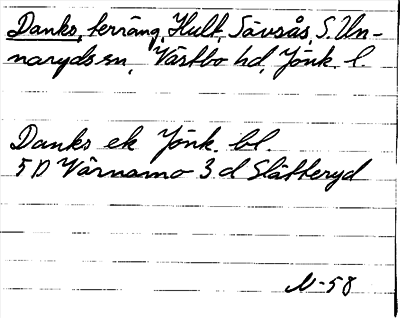 Danks, terräng, Hult, Sävsås, S. Un-
naryds sn, Västbo hd, Jönk. l.
Danks ek Jönk. bl.
5 D Värnamo 3 d Slätteryd
N-58